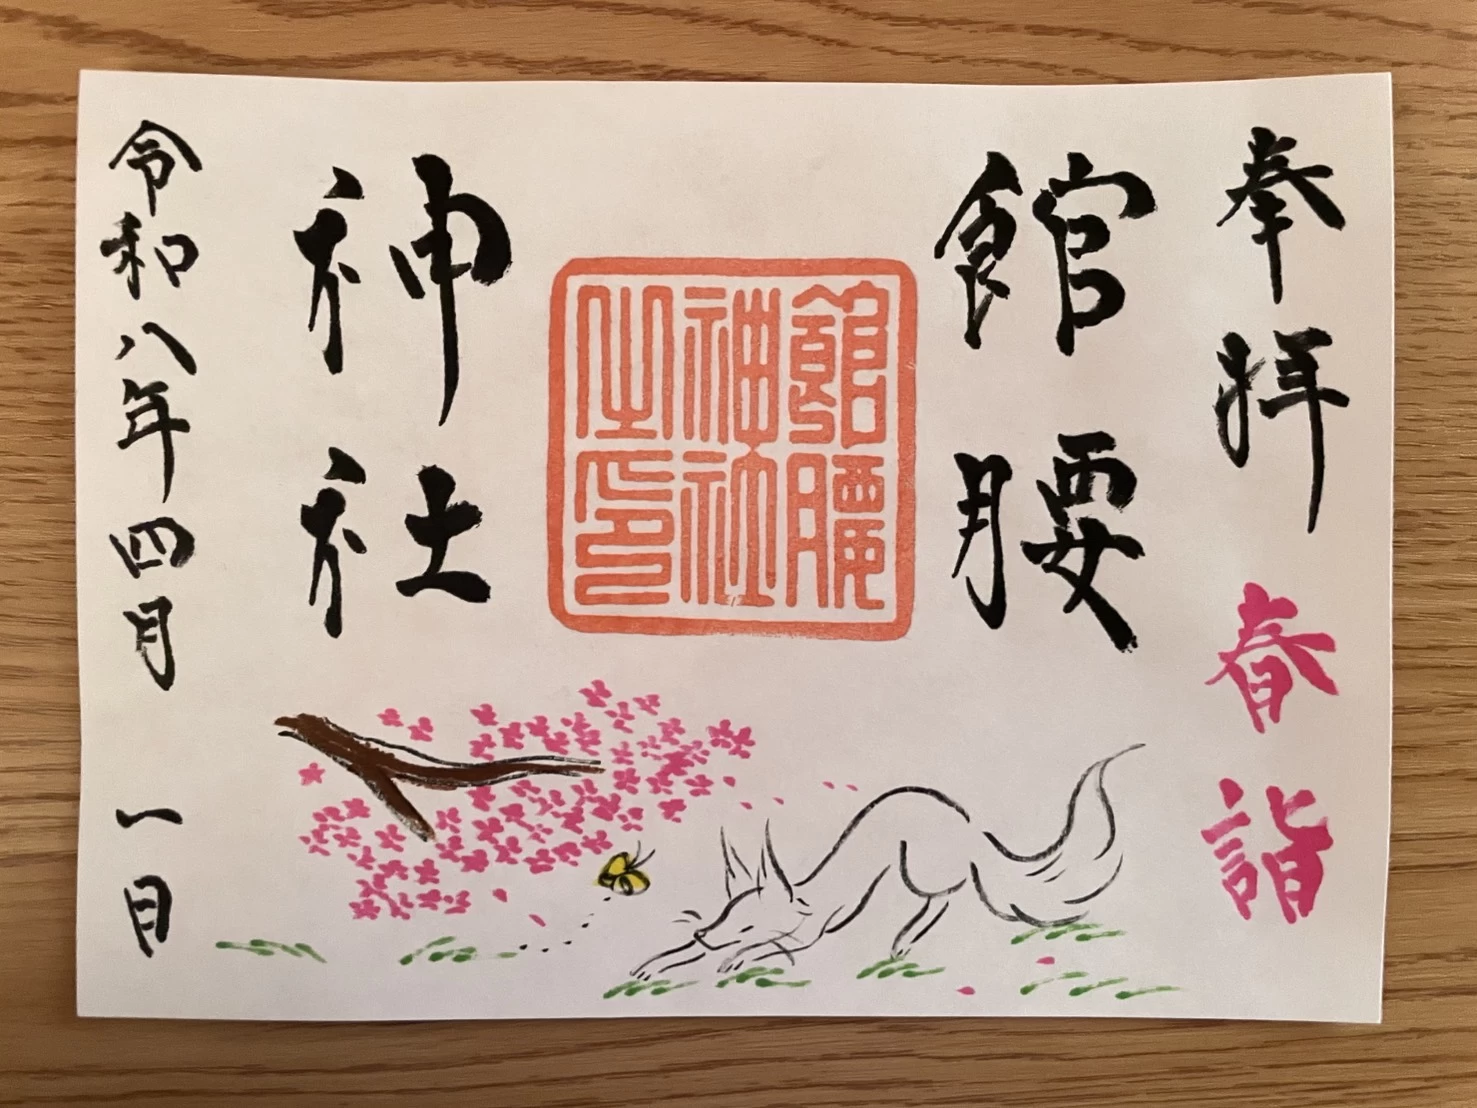 奉拝 春詣
館腰
館腰神社之印
神社
令和八年四月 一日